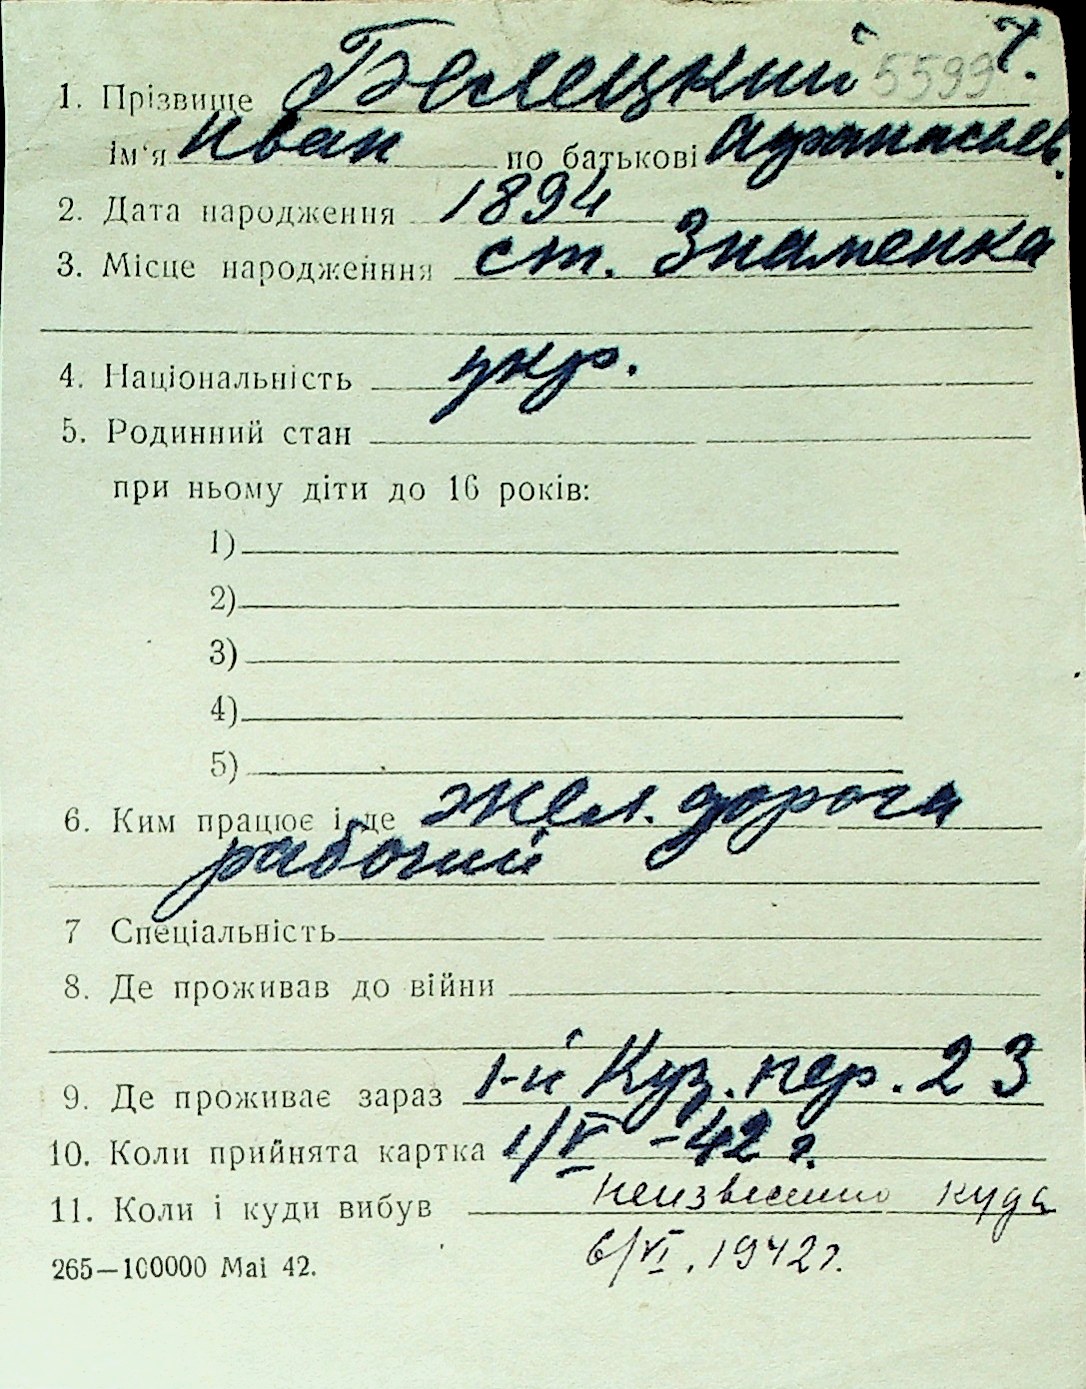 1. Прізвище Белецкий 5599 7.
ім'я Иван по батькові Афанасьев.
2. Дата народження 1894
3. Місце народженння ст. Знаменка
4. Національність укр.
5. Родинний стан
при ньому діти до 16 років:
1)
2)
3)
4)
5)
6. Ким працює і де жел. дорога
рабочий
7 Спеціальність
8. Де проживав до війни
9. Де проживає зараз 1-й Куз. пер. 23
10. Коли прийнята картка 1/V - 42 г.
11. Коли і куди вибув неизвестно куда
6/VI. 1942 г.
265—100000 Mai 42.